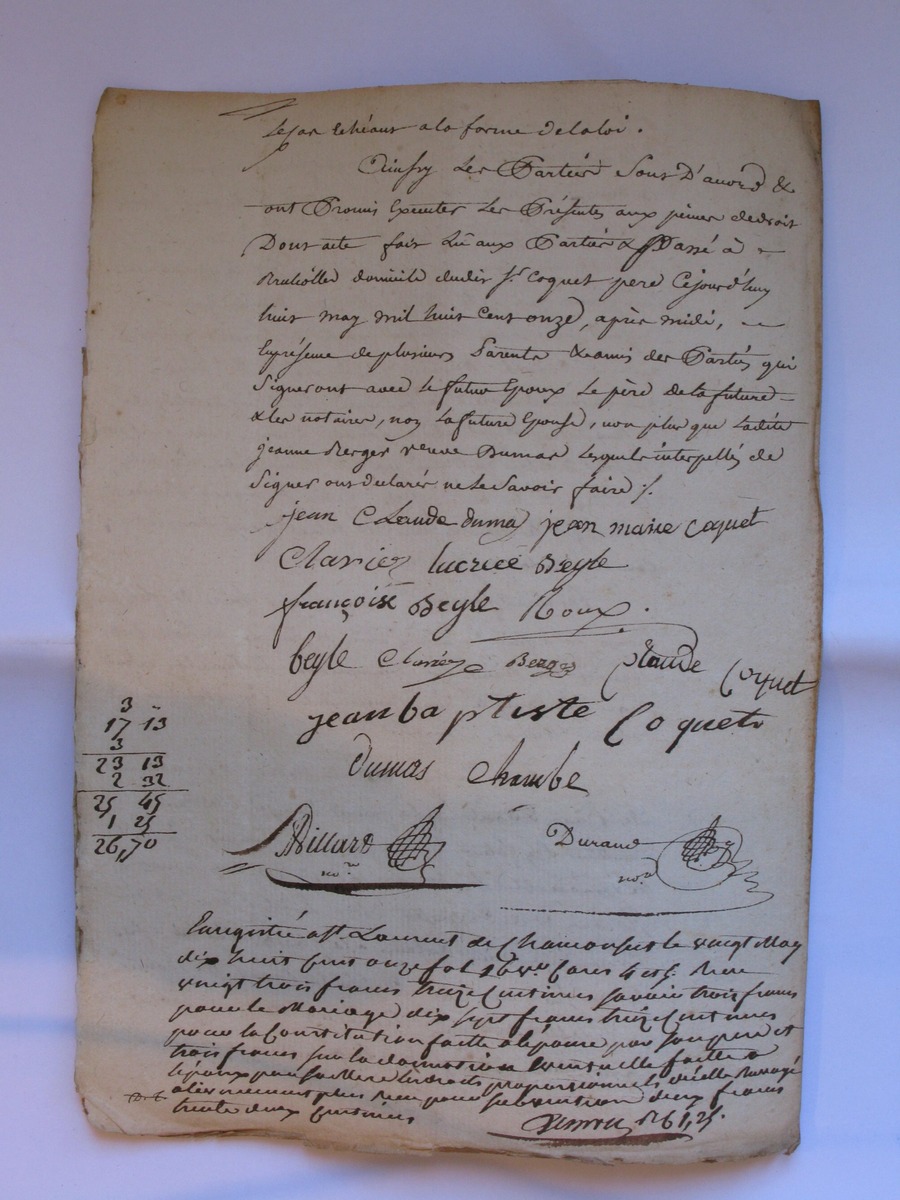 le cas echéant a la forme de la loi.
Ainsy les Parties sont D'accord &
ont Promis Executer les Présentes aux peines de droit
Dont acte fait Lû aux Parties & Passé à
domicile dudit Sr. Coquet pere Cejourd'huy
huit may mil huit cent onze, après midi,
En présence de plusieurs Parents & amis des Parties qui
Signeront avec le futur Epoux Le père de la future
& les notaires, non La future Epouse, non plus que Ladite
jeanne Berger veuve Dumas Lesquels interpellés de
Signer ont déclarés ne le Savoir faire ./.
jean Claude dumas jean marie coquet
Claviez lucrece Beyle
françoise Beyle Roux.
beyle Claviez Berger Claude Coquet
jean baptiste Coquet
Dumas Chambe
3
17 13
3
23 13
2 32
25 45
1 25
26,70
Billard Durand
not.re not.re
Enregistré a St. Laurent de Chamousset le vingt May
dix huit cent onze fol 26 v.o Cases 4 et 5. Reçu
vingt trois francs treize Centimes savoir trois francs
pour le Mariage dix sept francs treize Centimes
pour la Constitution faitte a l'épouse par son pere et
trois francs sur la donnation eventuelle faitte a
l'époux par sa Mere les droits proportionnels d'icelle
plus Reçu pour subvention deux francs
trente deux Centimes
D. E. 1, 25.